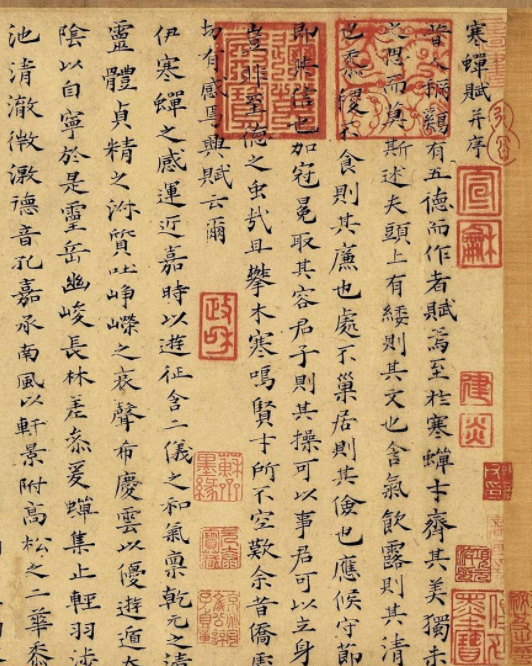 寒蟬賦并序
昔人稱鷄有五德而作者賦焉至於寒蟬才齊其美獨未
之思而莫斯述夫頭上有緌則其文也含氣飲露則其清
也黍稷不食則其廉也處不巢居則其儉也應候守節
即其信也加冠冕取其容君子則其操可以事君可以立身
豈非至德之虫㢤且攀木寒鳴賢士所不空歎余昔僑
切有感焉興賦云爾
伊寒蟬之感運近嘉時以遊征含二儀之和氣稟乾元之清
靈體貞精之淑質吐崢嶸之哀聲布慶雲以優遊遁太
陰以自寧於是靈岳幽峻長林差叅爰蟬集止輕羽涉
池清澈微激德音孔嘉承南風以軒景附高松之二華黍
宣龢
建炎
政和